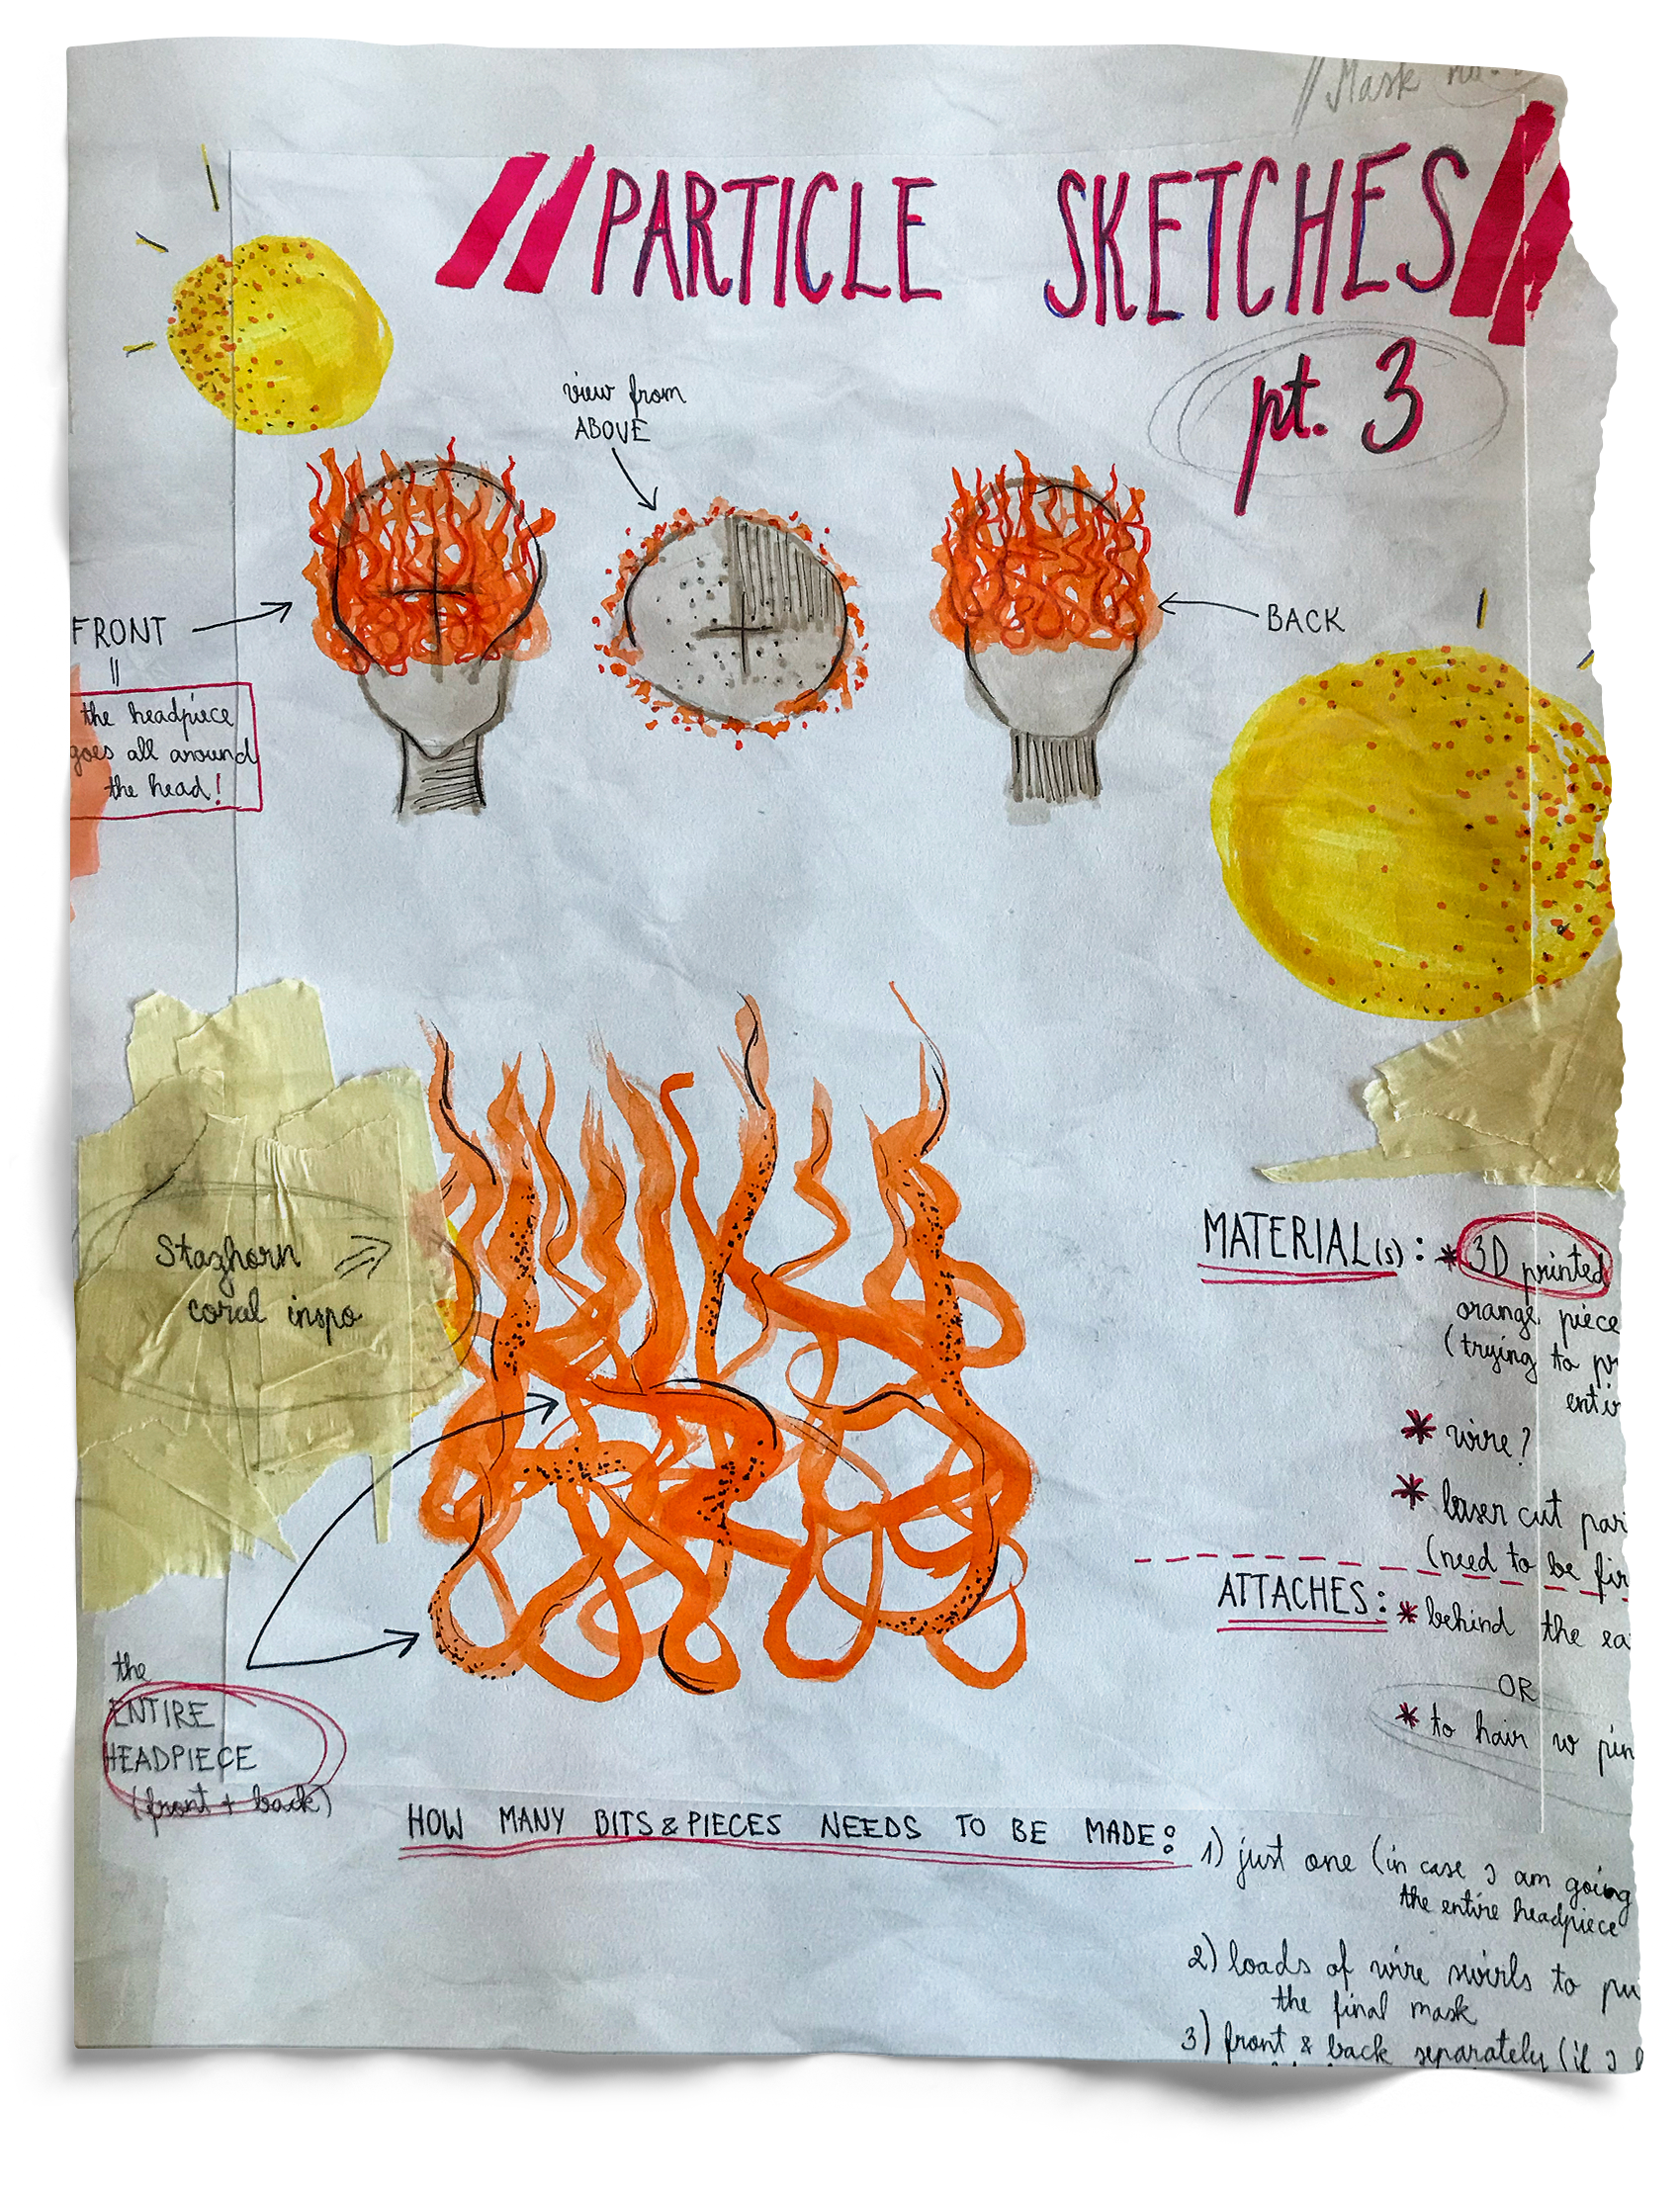 // Mask no.
// PARTICLE SKETCHES //
pt. 3
view from
ABOVE
FRONT
=
the headpiece
goes all around
the head!
BACK
Staghorn
coral inspo
MATERIAL(S): * 3D printed
orange piece
(trying to
* wire?
* laser cut
(need to be
ATTACHES: * behind the
OR
* to hair w
the
ENTIRE
HEADPIECE
(front + back)
HOW MANY BITS & PIECES NEEDS TO BE MADE:
1) just one (in case I am going
the entire headpiece
2) loads of wire swirls to
the final mask
3) front & back separately (if I